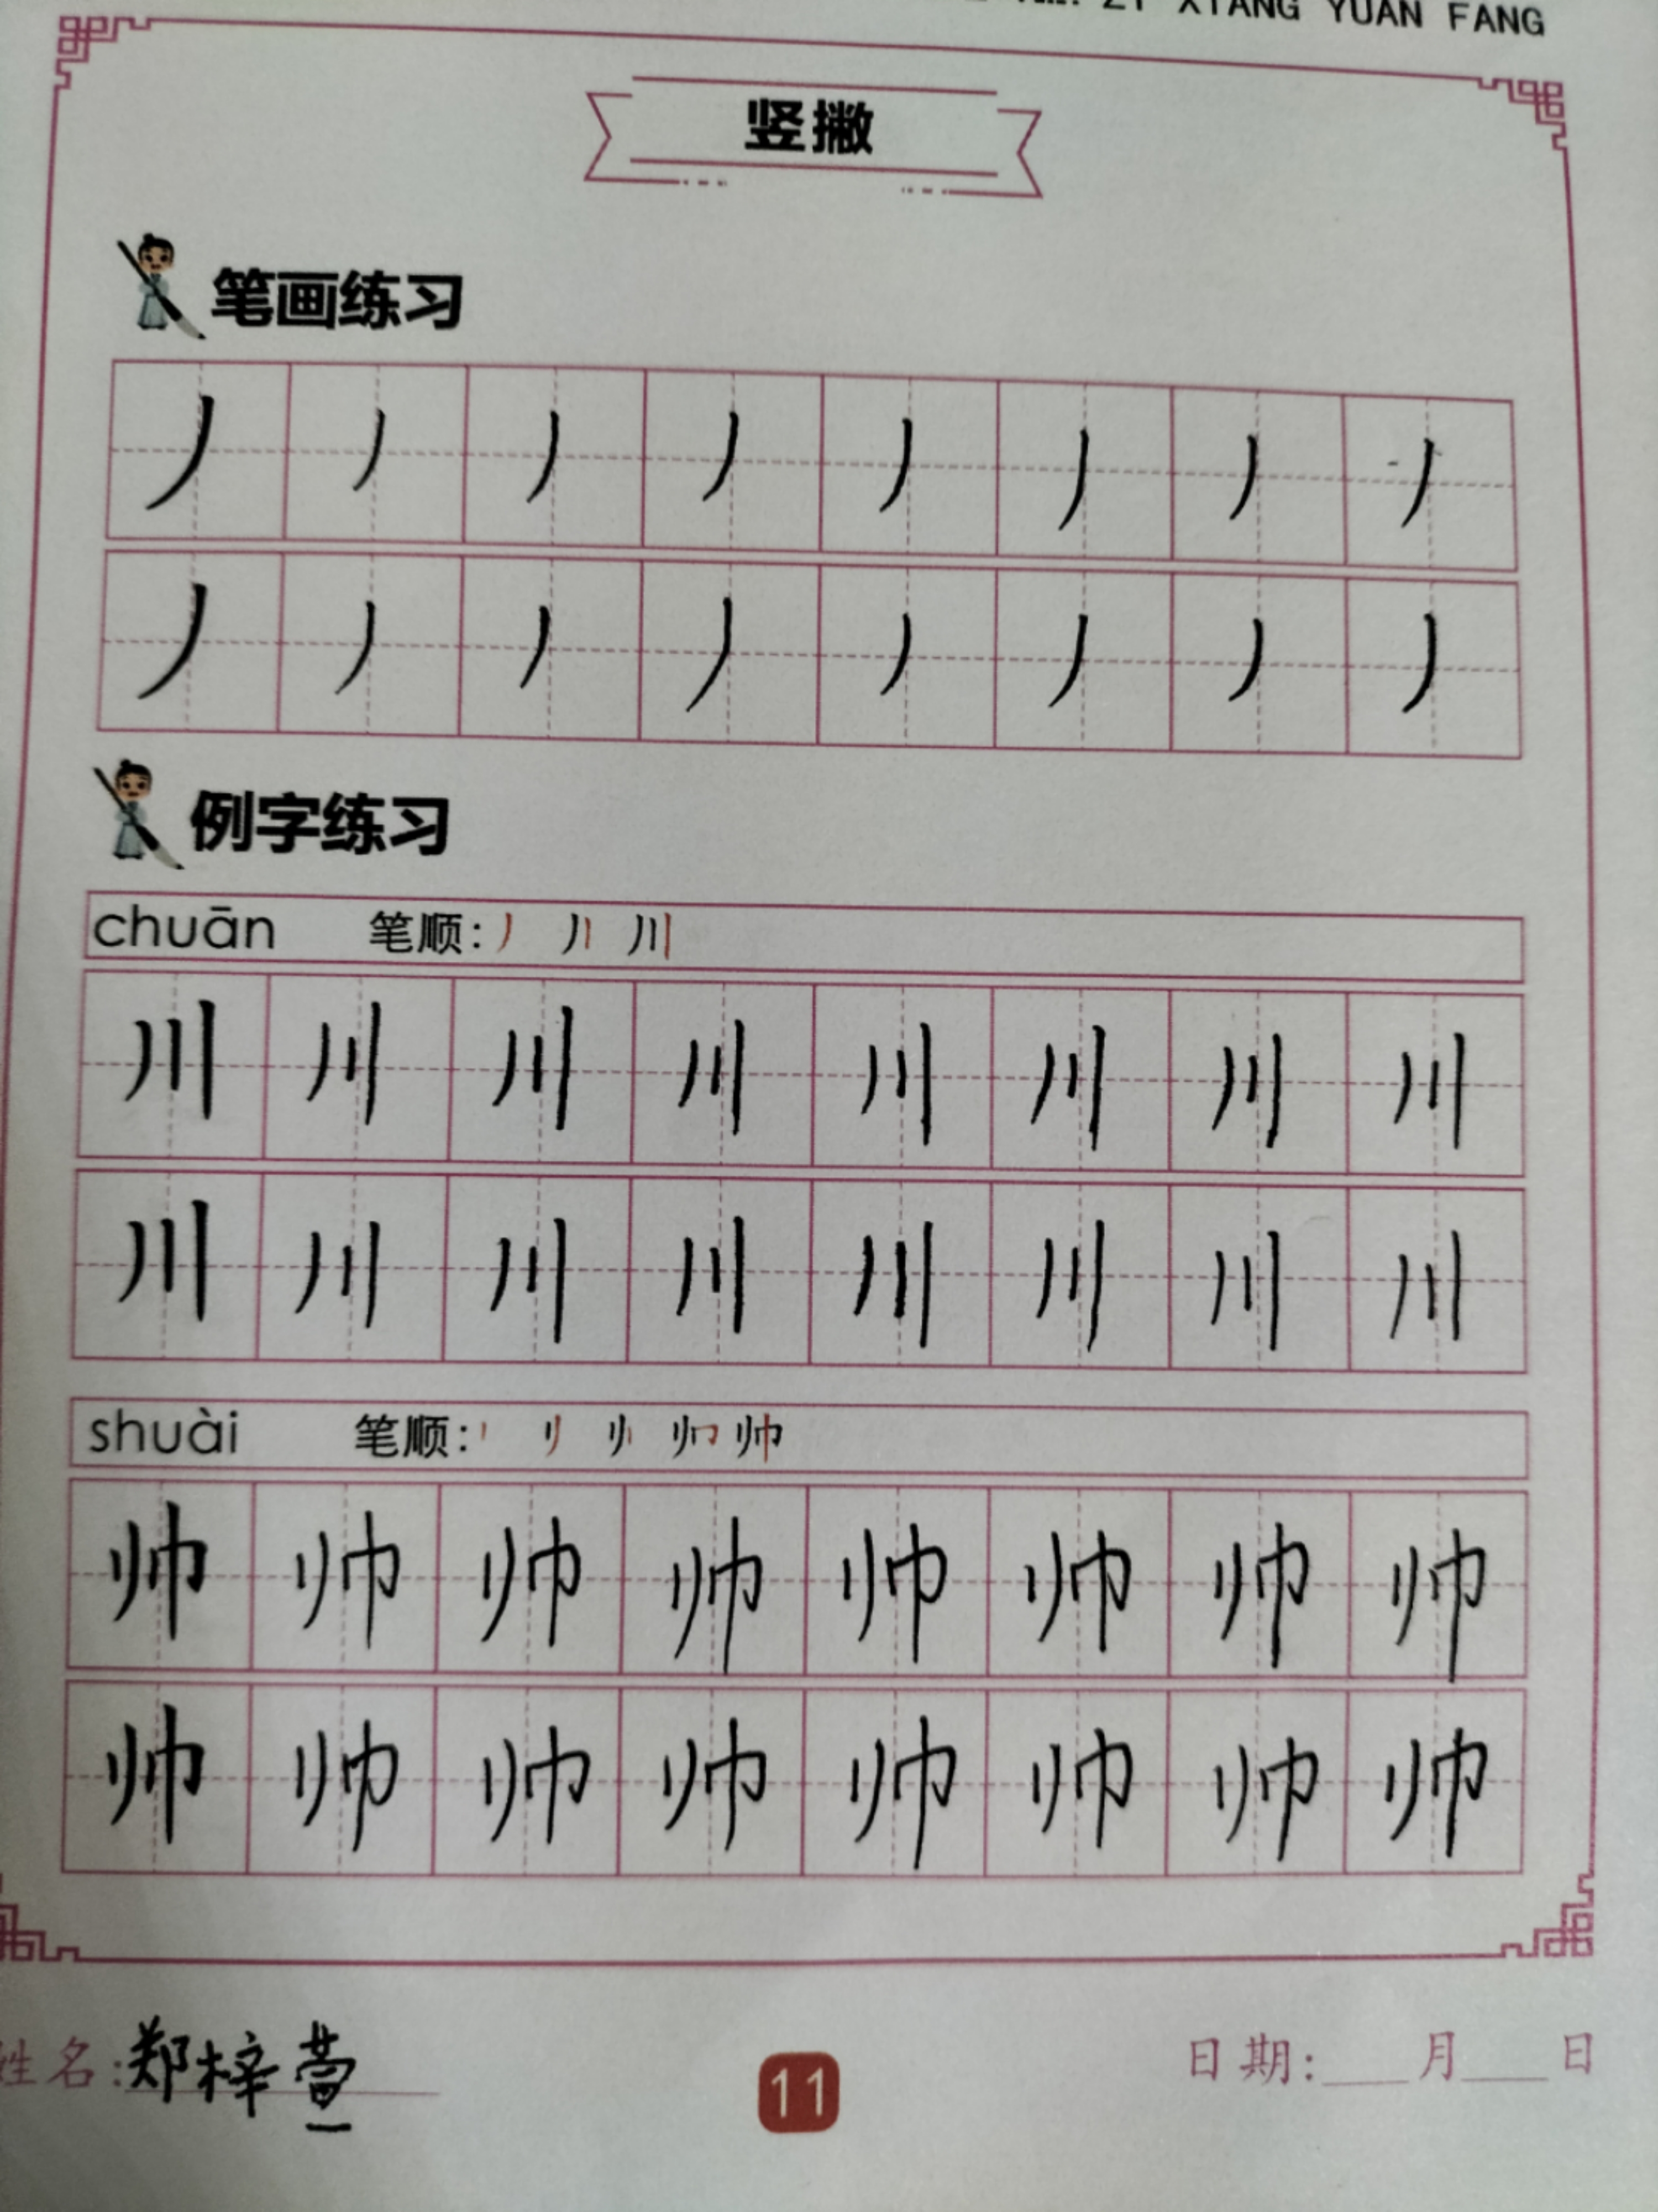 ZI XIANG YUAN FANG
竖撇
笔画练习
丿 丿 丿 丿 丿 丿 丿 丿
丿 丿 丿 丿 丿 丿 丿 丿
例字练习
chuān 笔顺:
川 川 川 川 川 川 川 川
川 川 川 川 川 川 川 川
shuài 笔顺:
帅 帅 帅 帅 帅 帅 帅 帅
帅 帅 帅 帅 帅 帅 帅 帅
姓名:郑梓萱
11
日期:___月___日